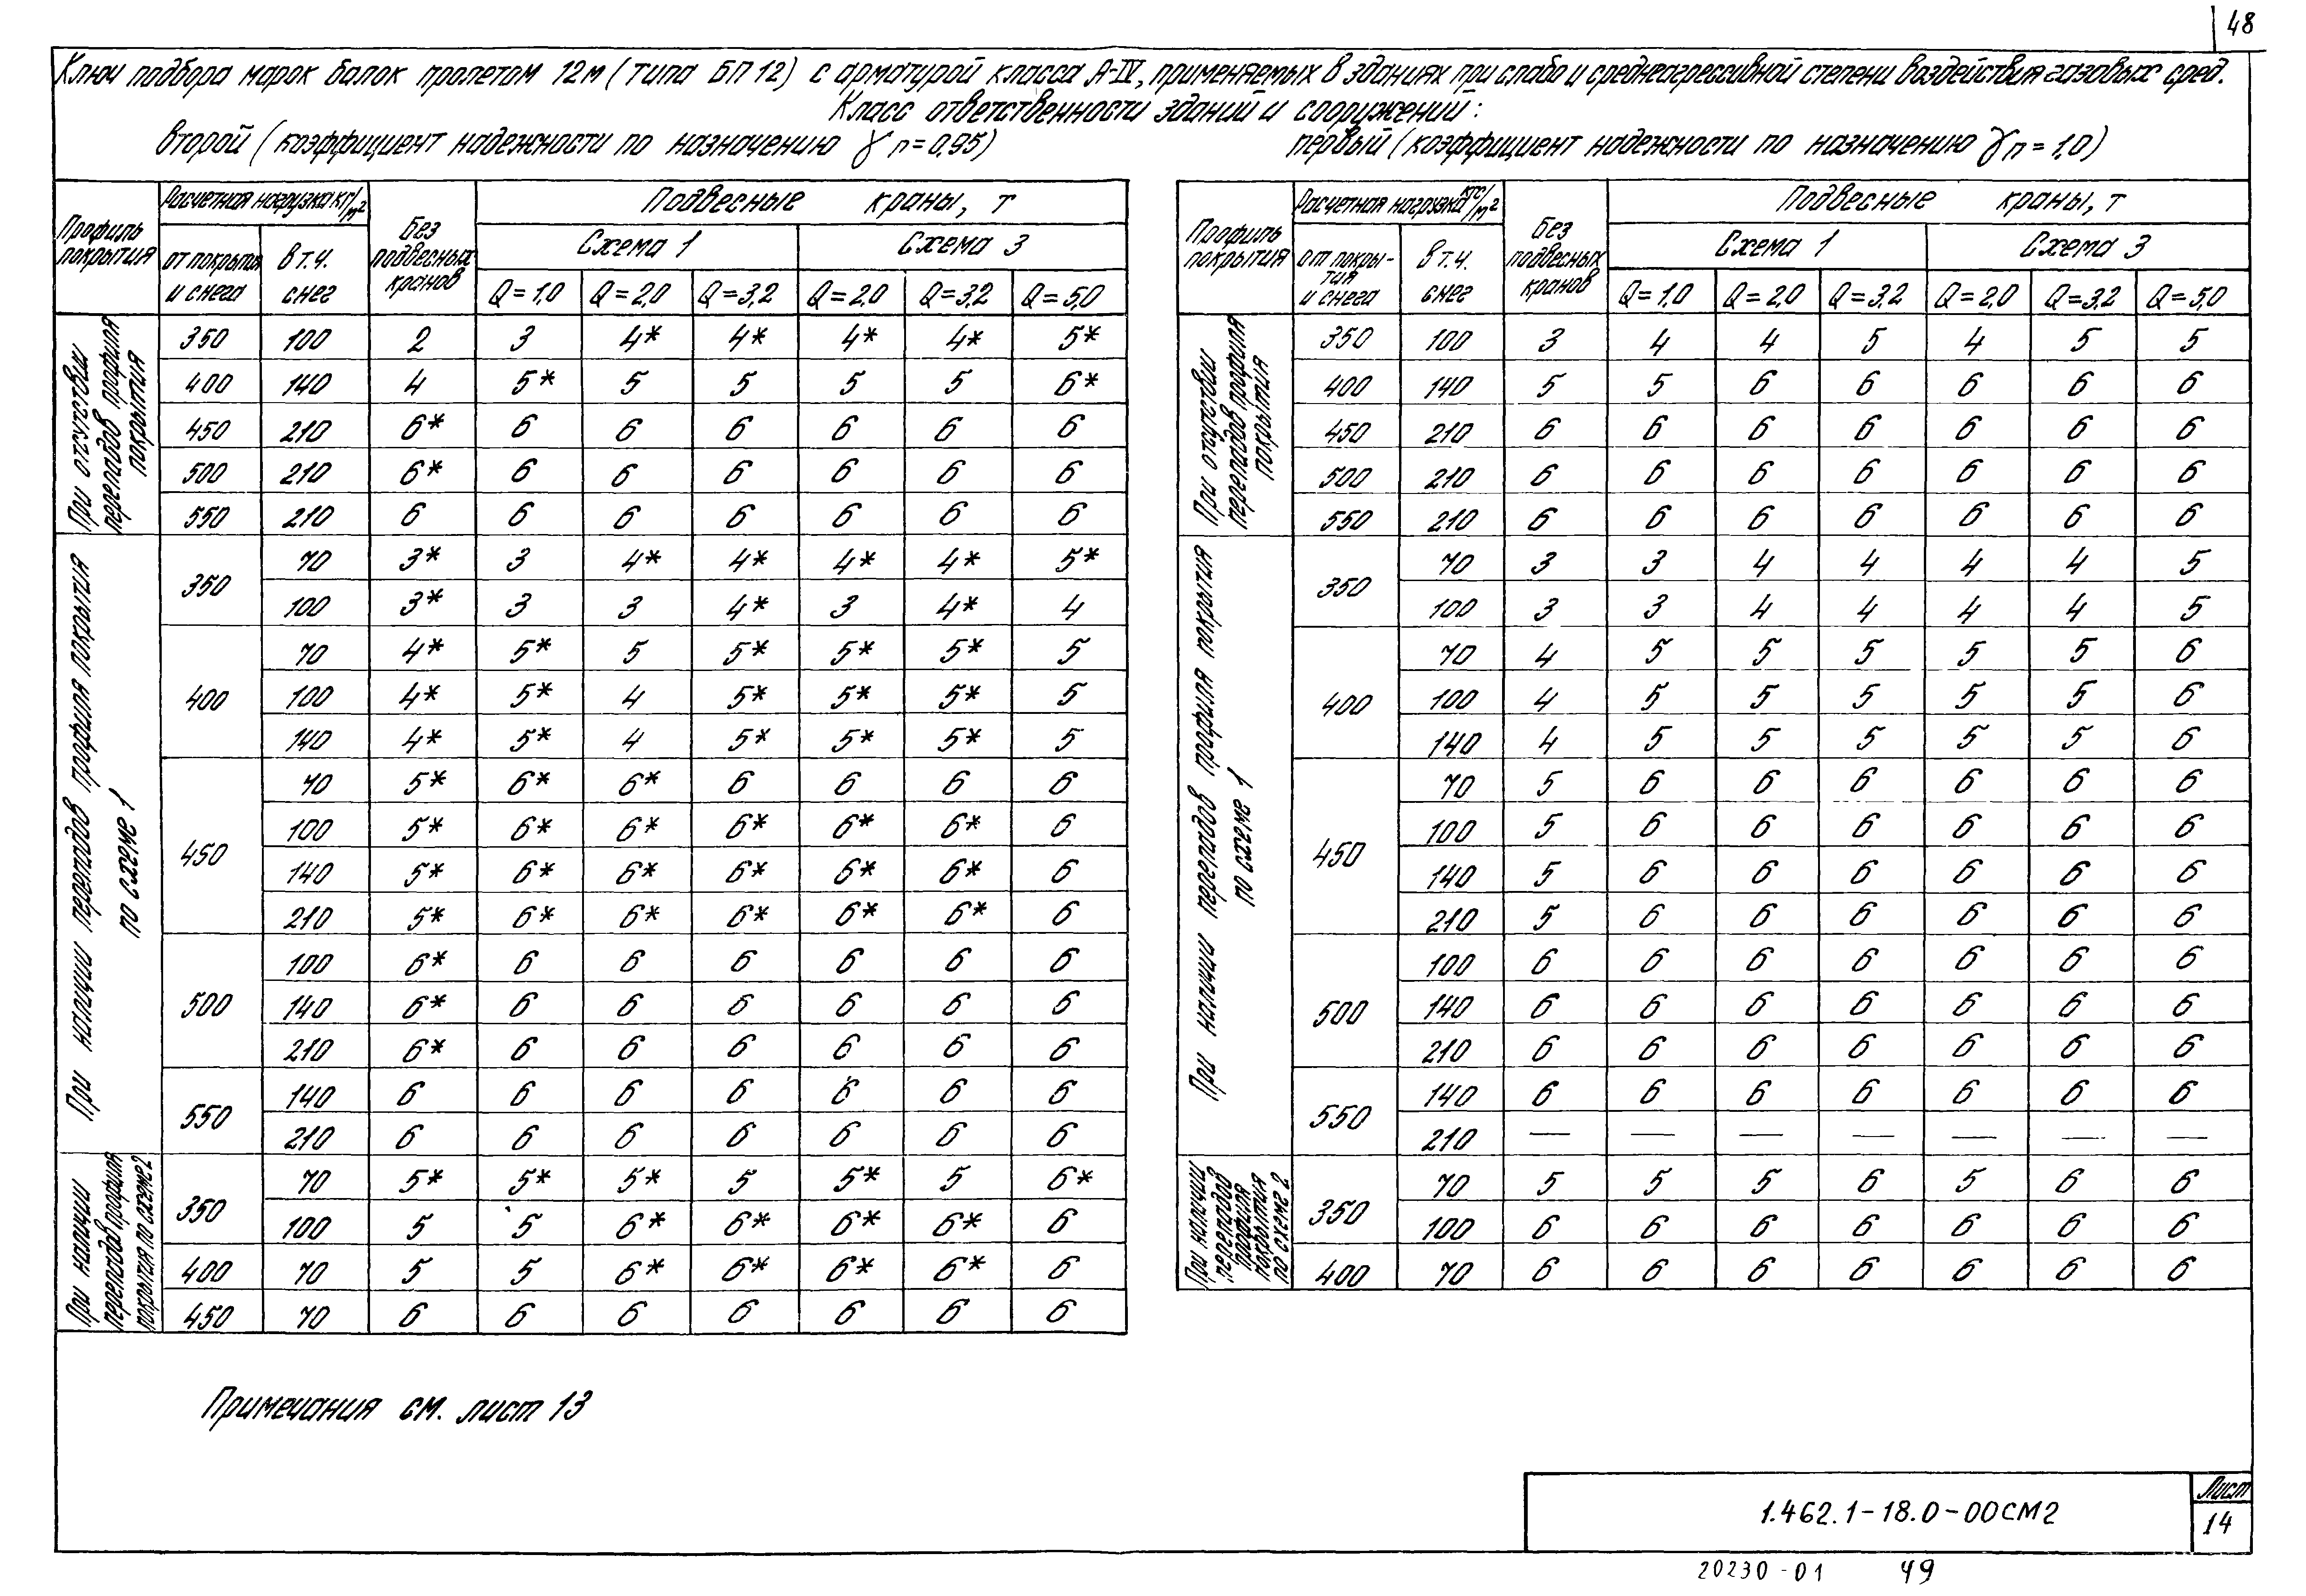 48
Ключ подбора марок балок пролетом 12м (типа БП12) с арматурой класса А-IV, применяемых в зданиях при слабо и среднеагрессивной степени воздействия газовых сред.
Класс ответственности зданий и сооружений:
второй (коэффициент надежности по назначению γ п=0,95)
первый (коэффициент надежности по назначению γ п=1,0)
Профиль покрытия | Расчетная нагрузка кг/м² | Без подвесных кранов | Подвесные краны, т
от покрытия и снега | в т.ч. снег | Схема 1 | Схема 3
Q=1,0 | Q=2,0 | Q=3,2 | Q=2,0 | Q=3,2 | Q=5,0
При отсутствии перепадов профиля покрытия
350 | 100 | 2 | 3 | 4* | 4* | 4* | 4* | 5*
400 | 140 | 4 | 5* | 5 | 5 | 5 | 5 | 6*
450 | 210 | 6* | 6 | 6 | 6 | 6 | 6 | 6
500 | 210 | 6* | 6 | 6 | 6 | 6 | 6 | 6
550 | 210 | 6 | 6 | 6 | 6 | 6 | 6 | 6
При наличии перепадов профиля покрытия по схеме 1
350 | 70 | 3* | 3 | 4* | 4* | 4* | 4* | 5*
100 | 3* | 3 | 3 | 4* | 3 | 4* | 4
400 | 70 | 4* | 5* | 5 | 5* | 5* | 5* | 5
100 | 4* | 5* | 4 | 5* | 5* | 5* | 5
140 | 4* | 5* | 4 | 5* | 5* | 5* | 5
450 | 70 | 5* | 6* | 6* | 6 | 6 | 6 | 6
100 | 5* | 6* | 6* | 6* | 6* | 6* | 6
140 | 5* | 6* | 6* | 6* | 6* | 6* | 6
210 | 5* | 6* | 6* | 6* | 6* | 6* | 6
500 | 100 | 6* | 6 | 6 | 6 | 6 | 6 | 6
140 | 6* | 6 | 6 | 6 | 6 | 6 | 6
210 | 6* | 6 | 6 | 6 | 6 | 6 | 6
550 | 140 | 6 | 6 | 6 | 6 | 6 | 6 | 6
210 | 6 | 6 | 6 | 6 | 6 | 6 | 6
При наличии перепадов профиля покрытия по схеме 2
350 | 70 | 5* | 5* | 5* | 5 | 5* | 5 | 6*
100 | 5 | 5 | 6* | 6* | 6* | 6* | 6
400 | 70 | 5 | 5 | 6* | 6* | 6* | 6* | 6
450 | 70 | 6 | 6 | 6 | 6 | 6 | 6 | 6
Профиль покрытия | Расчетная нагрузка кгс/м² | Без подвесных кранов | Подвесные краны, т
от покрытия и снега | в т.ч. снег | Схема 1 | Схема 3
Q=1,0 | Q=2,0 | Q=3,2 | Q=2,0 | Q=3,2 | Q=5,0
При отсутствии перепадов профиля покрытия
350 | 100 | 3 | 4 | 4 | 5 | 4 | 5 | 5
400 | 140 | 5 | 5 | 6 | 6 | 6 | 6 | 6
450 | 210 | 6 | 6 | 6 | 6 | 6 | 6 | 6
500 | 210 | 6 | 6 | 6 | 6 | 6 | 6 | 6
550 | 210 | 6 | 6 | 6 | 6 | 6 | 6 | 6
При наличии перепадов профиля покрытия по схеме 1
350 | 70 | 3 | 3 | 4 | 4 | 4 | 4 | 5
100 | 3 | 3 | 4 | 4 | 4 | 4 | 5
400 | 70 | 4 | 5 | 5 | 5 | 5 | 5 | 6
100 | 4 | 5 | 5 | 5 | 5 | 5 | 6
140 | 4 | 5 | 5 | 5 | 5 | 5 | 6
450 | 70 | 5 | 6 | 6 | 6 | 6 | 6 | 6
100 | 5 | 6 | 6 | 6 | 6 | 6 | 6
140 | 5 | 6 | 6 | 6 | 6 | 6 | 6
210 | 5 | 6 | 6 | 6 | 6 | 6 | 6
500 | 100 | 6 | 6 | 6 | 6 | 6 | 6 | 6
140 | 6 | 6 | 6 | 6 | 6 | 6 | 6
210 | 6 | 6 | 6 | 6 | 6 | 6 | 6
550 | 140 | 6 | 6 | 6 | 6 | 6 | 6 | 6
210 | — | — | — | — | — | — | —
При наличии перепадов профиля покрытия по схеме 2
350 | 70 | 5 | 5 | 5 | 6 | 5 | 6 | 6
100 | 6 | 6 | 6 | 6 | 6 | 6 | 6
400 | 70 | 6 | 6 | 6 | 6 | 6 | 6 | 6
Примечания см. лист 13
1.462.1-18.0-00СМ2
Лист
14
20230-01 49